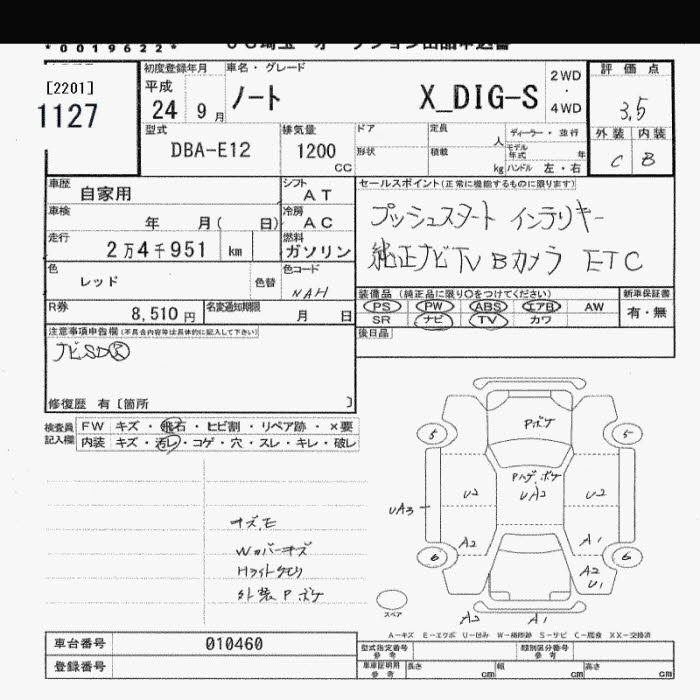 *0019622*
[2201]
1127
初度登録年月
平成
24 9 月
車名・グレード
ノート X_DIG-S
2WD
・
4WD
評価点
3.5
外装 内装
C B
型式
DBA-E12
排気量
1200
CC
ドア
形状
定員
人
積載
kg
ディーラー・並行
モデル年式 年
ハンドル 左・右
車歴
自家用
シフト
AT
車検
年 月( 日)
冷房
AC
走行
2万4千951 km
燃料
ガソリン
色
レッド
色替
色コード
NAH
R券
8,510円
名変通知期限
月 日
セールスポイント(正常に機能するものに限ります)
プッシュスタート インテリキー
純正ナビTV Bカメラ ETC
装備品(純正品に限り○をつけてください)
PS PW ABS エアB AW
SR ナビ TV カワ
新車保証書
有・無
後日品
注意事項申告欄(不具合内容等は具体的に記入して下さい)
ナビSD
修復歴 有〔箇所 〕
検査員
記入欄
FW キズ・飛石・ヒビ割・リペア跡・×要
内装 キズ・汚レ・コゲ・穴・スレ・キレ・破レ
キズ.E
Wカバーキズ
Hライトクモリ
外装Pボケ
Pボケ
5 5
Pハゲ.ボケ
U2 UA2 U2
UA3
A2 A1
6 6
A2
U1
スペア
A2 A1
A-キズ E-エクボ U-凹み W-補修跡 S-サビ C-腐食 XX-交換済
車台番号
010460
登録番号
型式指定番号
参考
類別区分番号
参考
車庫証明用
参考
長さ cm
幅 cm
高さ cm